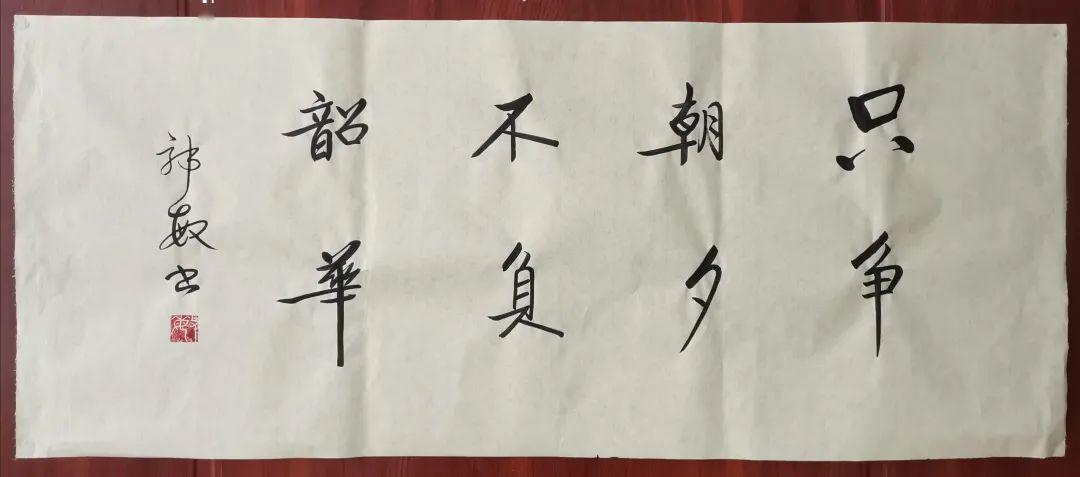 只争
朝夕
不負
韶華
敏书